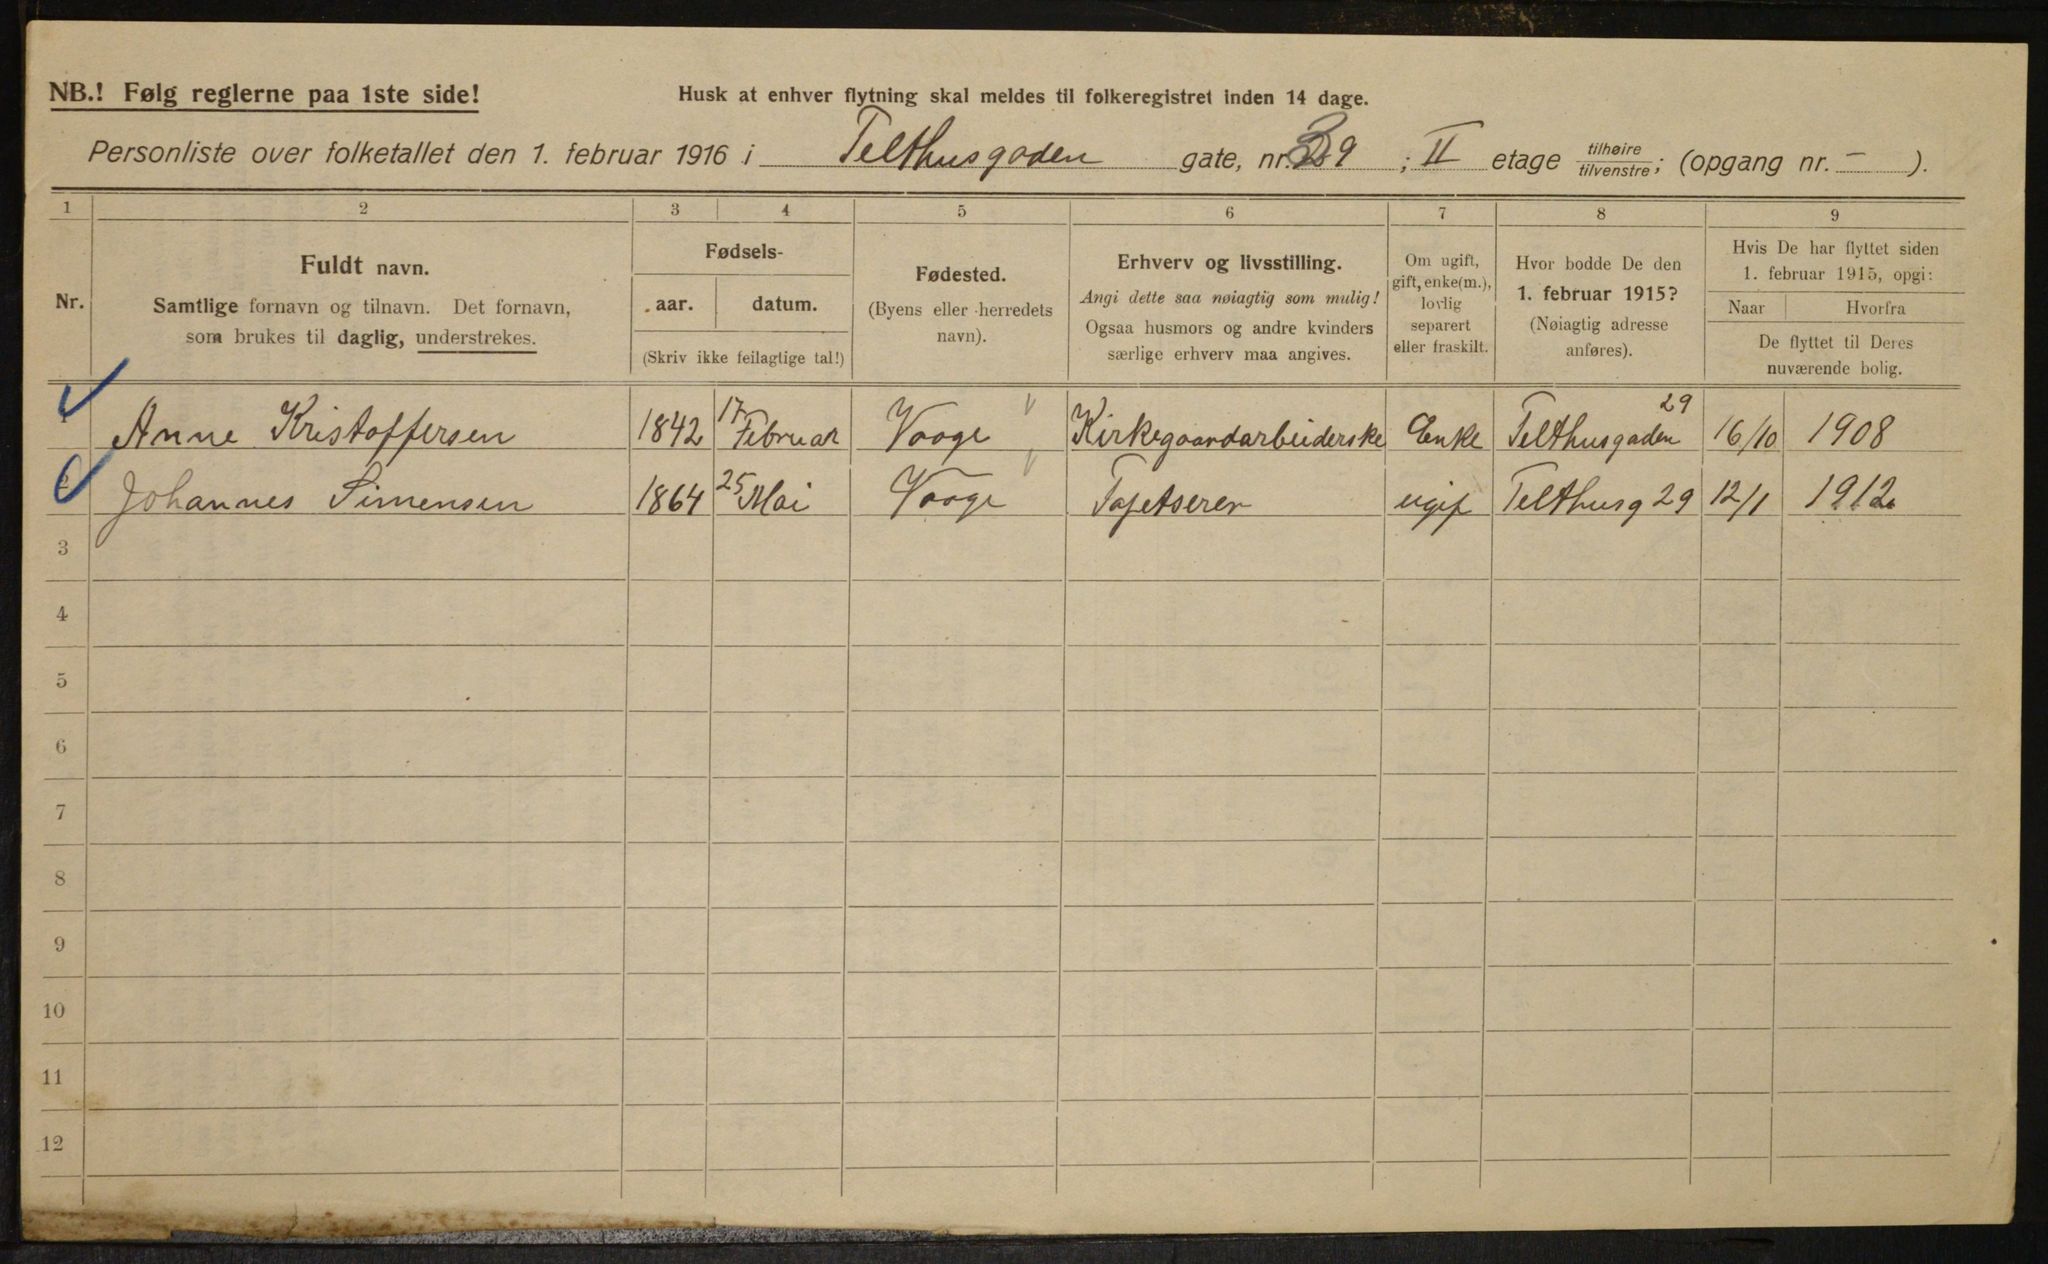 NB.! Følg reglerne paa 1ste side!
Husk at enhver flytning skal meldes til folkeregistret inden 14 dage.
Personliste over folketallet den 1. februar 1916 i Telthusgaden gate, nr. 39; II etage tilhøire/tilvenstre; (opgang nr. - ).
1 2 3 4 5 6 7 8 9
Nr.
Fuldt navn.
Samtlige fornavn og tilnavn. Det fornavn,
som brukes til daglig, understrekes.
Fødsels-
aar. datum.
(Skriv ikke feilagtige tal!)
Fødested.
(Byens eller herredets
navn).
Erhverv og livsstilling.
Angi dette saa nøiagtig som mulig!
Ogsaa husmors og andre kvinders
særlige erhverv maa angives.
Om ugift,
gift, enke(m.),
lovlig
separert
eller fraskilt.
Hvor bodde De den
1. februar 1915?
(Nøiagtig adresse
anføres).
Hvis De har flyttet siden
1. februar 1915, opgi:
Naar Hvorfra
De flyttet til Deres
nuværende bolig.
1 Anne Kristoffersen 1842 17 Februar Vaage Kirkegaardarbeiderske Enke Telthusgaden 29 16/10 1908
2 Johannes Simensen 1864 25 Mai Vaage Tapetserer ugif Telthusg 29 12/1 1912
3
4
5
6
7
8
9
10
11
12